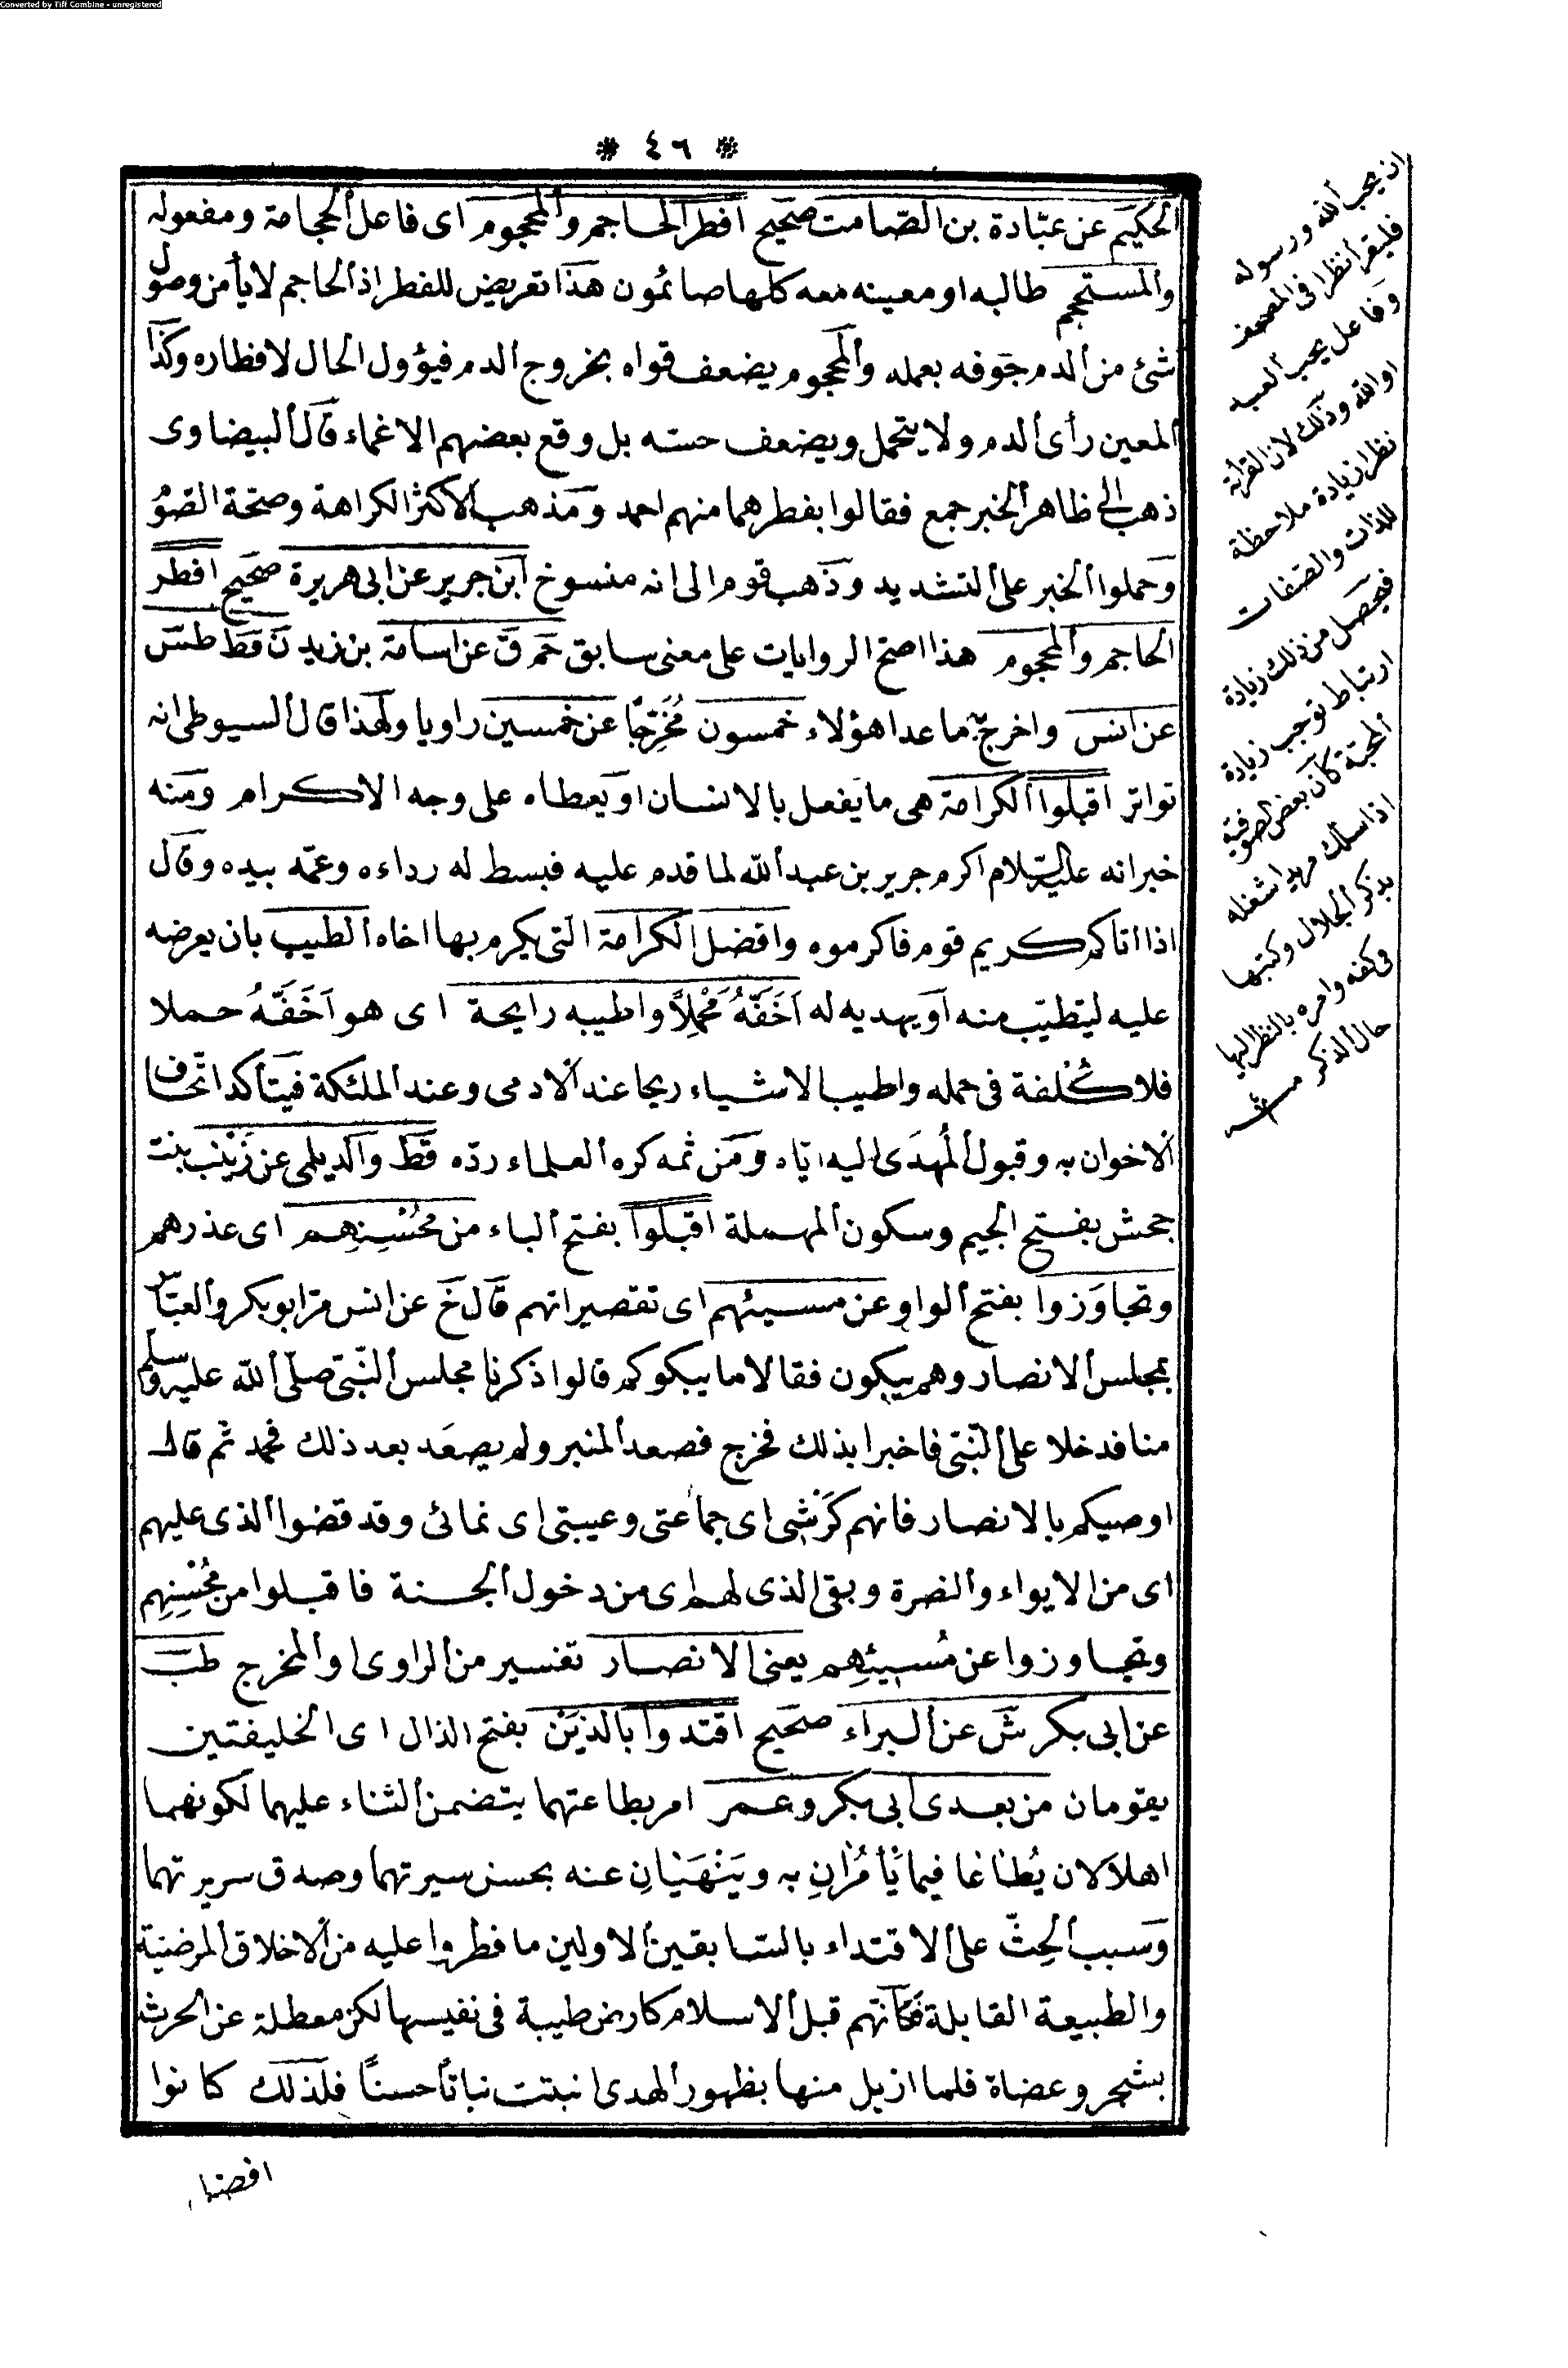 Converted by Tiff Combine - unregistered
* ٤٦ *
الحكيم عن عبّادة بن الصّامت صحيح افطر الحاجم والمحجوم اى فاعل الحجامة ومفعوله
والمستحجم طالبه او معينه معه كلها صائمون هذا تعريض للفطر اذ الحاجم لا يأمن وصول
شئ من الدم جوفه بعمله والمحجوم يضعف قواه بخروج الدم فيؤول الحال لافطاره وكذا
المعين رأى الدم ولا يتحمل ويضعف حسّه بل وقع بعضهم الاغماء قال البيضاوى
ذهب الى ظاهر الخبر جمع فقالوا بفطرهما منهم احمد ومذهب الاكثر الكراهة وصحّة الصوْ
وحملوا الخبر على التشديد وذهب قوم الى انه منسوخ ابن جرير عن ابى هريرة صحيح افطر
الحاجم والمحجوم هذا اصحّ الروايات على معنى سابق حم ق عن اسامة بن زيد ن قط طس
عن انس واخرج ما عدا هؤلاء خمسون مُخَرِّجًا عن خمسين راويا ولهذا قال السيوطى انه
تواتر اقبلوا الكرامة هى ما يفعل بالانسان او يعطاه على وجه الاكرام ومنه
خبر انه عليه السّلام اكرم جرير بن عبد الله لما قدم عليه فبسط له رداءه وعمّه بيده وقال
اذا اتاكم كريم قوم فاكرموه وافضل الكرامة التى يكرم بها اخاه الطيب بان يعرضه
عليه ليتطيّب منه او يهديه له اَخَفّهُ مَحْمِلاً واطيبه رايحة اى هو اَخَفّهُ حملا
فلا كُلفة فى حمله واطيب الاشياء ريحا عند الادمى وعند الملئكة فيتأكد اتّحاف
الاخوان به وقبول المُهدَى اليه ايّاه ومن ثمه كره العلماء ردّه قط والديلمى عن زَيْنَب بنت
جحش بفتح الجيم وسكون المهملة اقبلوا بفتح الباء من مُحْسِنِهِم اى عذرهم
وتجاوَزوا بفتح الواو عن مسيئهم اى تقصيراتهم قال خ عن انس مرّ ابو بكر والعبّاس
بمجلس الانصار وهم يبكون فقالا ما يبكوكم قالوا ذكرنا مجلس النّبىّ صلّى الله عليه وسلم
منا فدخلا على النّبىّ فاخبرا بذلك فخرج فصعد المنبر ولم يصعَد بعد ذلك فحمد ثم قال
اوصيكم بالانصار فانهم كَرِشِى اى جماعتى وعيبتى اى نمائى وقد قضوا الذى عليهم
اى من الايواء والنصرة وبقى الذى لهم اى من دخول الجنة فاقبلوا من مُحْسِنِهِم
وتجاوزوا عن مُسِيئِهِم يعنى الانصار تفسير من الراوى والمخرج طب
عن ابى بكر ش عن البراء صحيح اقتدوا بالذيَن بفتح الذال اى الخليفتين
يقومان من بعدى ابى بكر وعمر امر بطاعتهما يتضمن الثناء عليهما لكونهما
اهلا لان يُطاعا فيما يَأمُرانِ به ويَنْهَيَانِ عنه بحسن سيرتهما وصدق سريرتهما
وسبب الحثّ على الاقتداء بالسّابقين الاولين ما فطروا عليه من الاخلاق المرضيّة
والطبيعة القابلة فكانّهم قبل الاسلام كارض طيبة فى نفسها لكن معطلة عن الحرث
بشجر وعضاة فلما ازيل منها بظهور الهدى انبتت نباتاً حسناً فلذلك كانوا
افضل
ان يحب الله ورسوله
فليقرأ نظرا فى المصحف
وفاعل يحب العبد
او الله وذلك لان القراءة
نظرا زيادة ملاحظة
للذات والصّفات
فيحصل من ذلك زيادة
ارتباط توجب زيادة
المحبّة كان بعض الصوفية
اذا سلك مريدا شغله
بذكر الجلال وكتبها
فى كفه وامره بالنظر اليها
حال الذكر